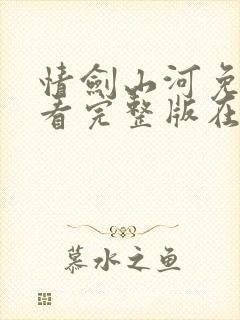 情劍山河免
看完整版在
慕水之鱼